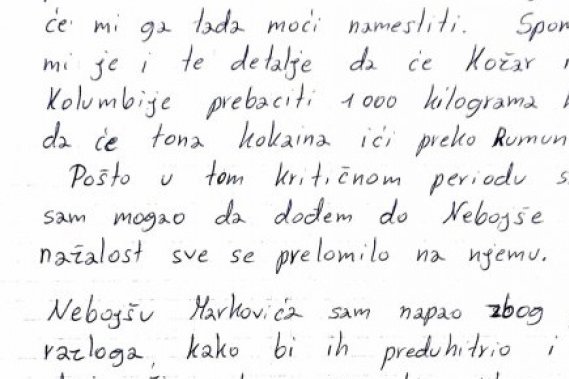 će mi ga tada moći namestiti. Spom
mi je i te detalje da će Kožar
Kolumbije prebaciti 1000 kilograma
da će tona kokaina ići preko Rumun
Pošto u tom kritičnom periodu
sam mogao da dođem do Nebojše
nažalost sve se prelomilo na njemu.
Nebojšu Markovića sam napao zbog
razloga, kako bi ih preduhitrio i